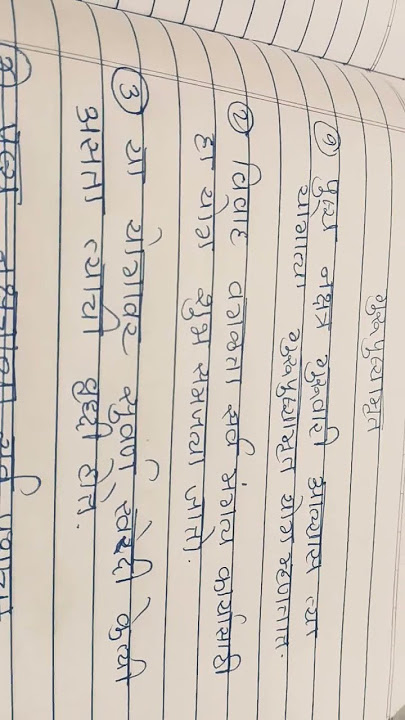 गुरुपुष्यामृत
१ पुष्य नक्षत्र गुरुवारी आल्यास त्या
योगाला गुरुपुष्यामृत योग म्हणतात.
२ विवाह वगळता सर्व मंगल कार्यासाठी
हा योग शुभ समजला जातो.
३ या योगावर सुवर्ण खरेदी केली
असता त्याची वृध्दी होते.